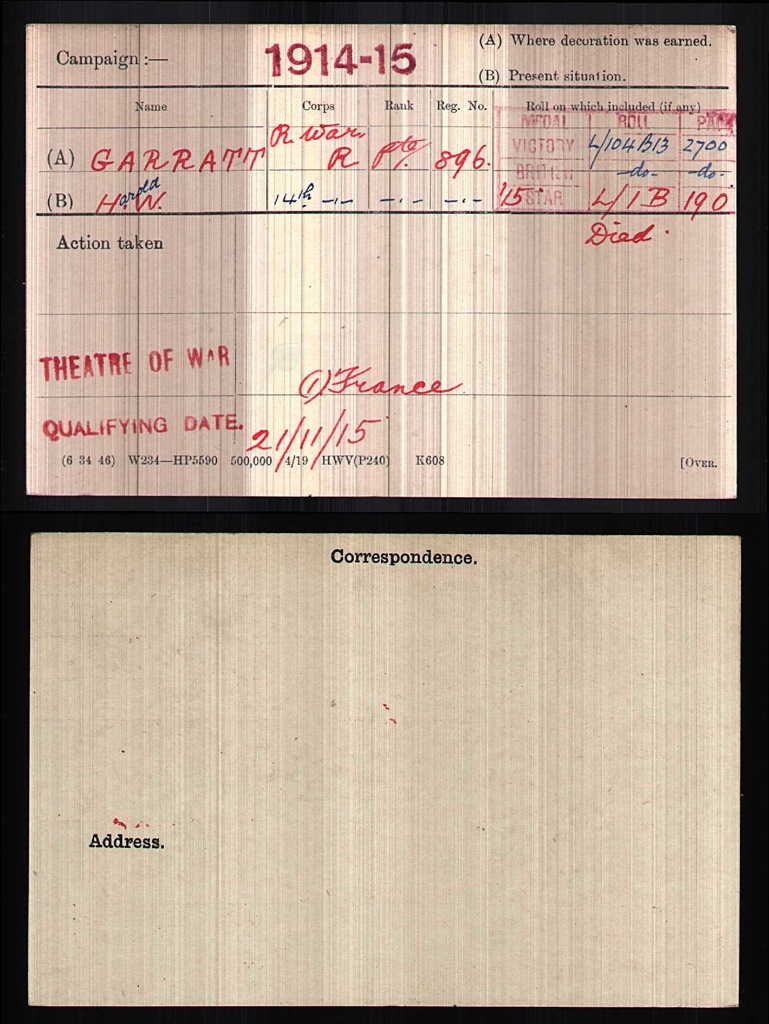 Campaign :— 1914-15 (A) Where decoration was earned.
(B) Present situation.
Name Corps Rank Reg. No. Roll on which included (if any)
MEDAL ROLL PAGE
(A) GARRATT R War R Pte. 896. VICTORY L/104B13 2700
BRITISH -do- -do-
(B) Harold W. 14th -"- -"- -"- '15 STAR L/1B 190
Action taken Died.
THEATRE OF WAR (1) France
QUALIFYING DATE. 21/11/15
(6 34 46) W234—HP5590 500,000 4/19 HWV(P240) K608 [OVER.
Correspondence.
Address.